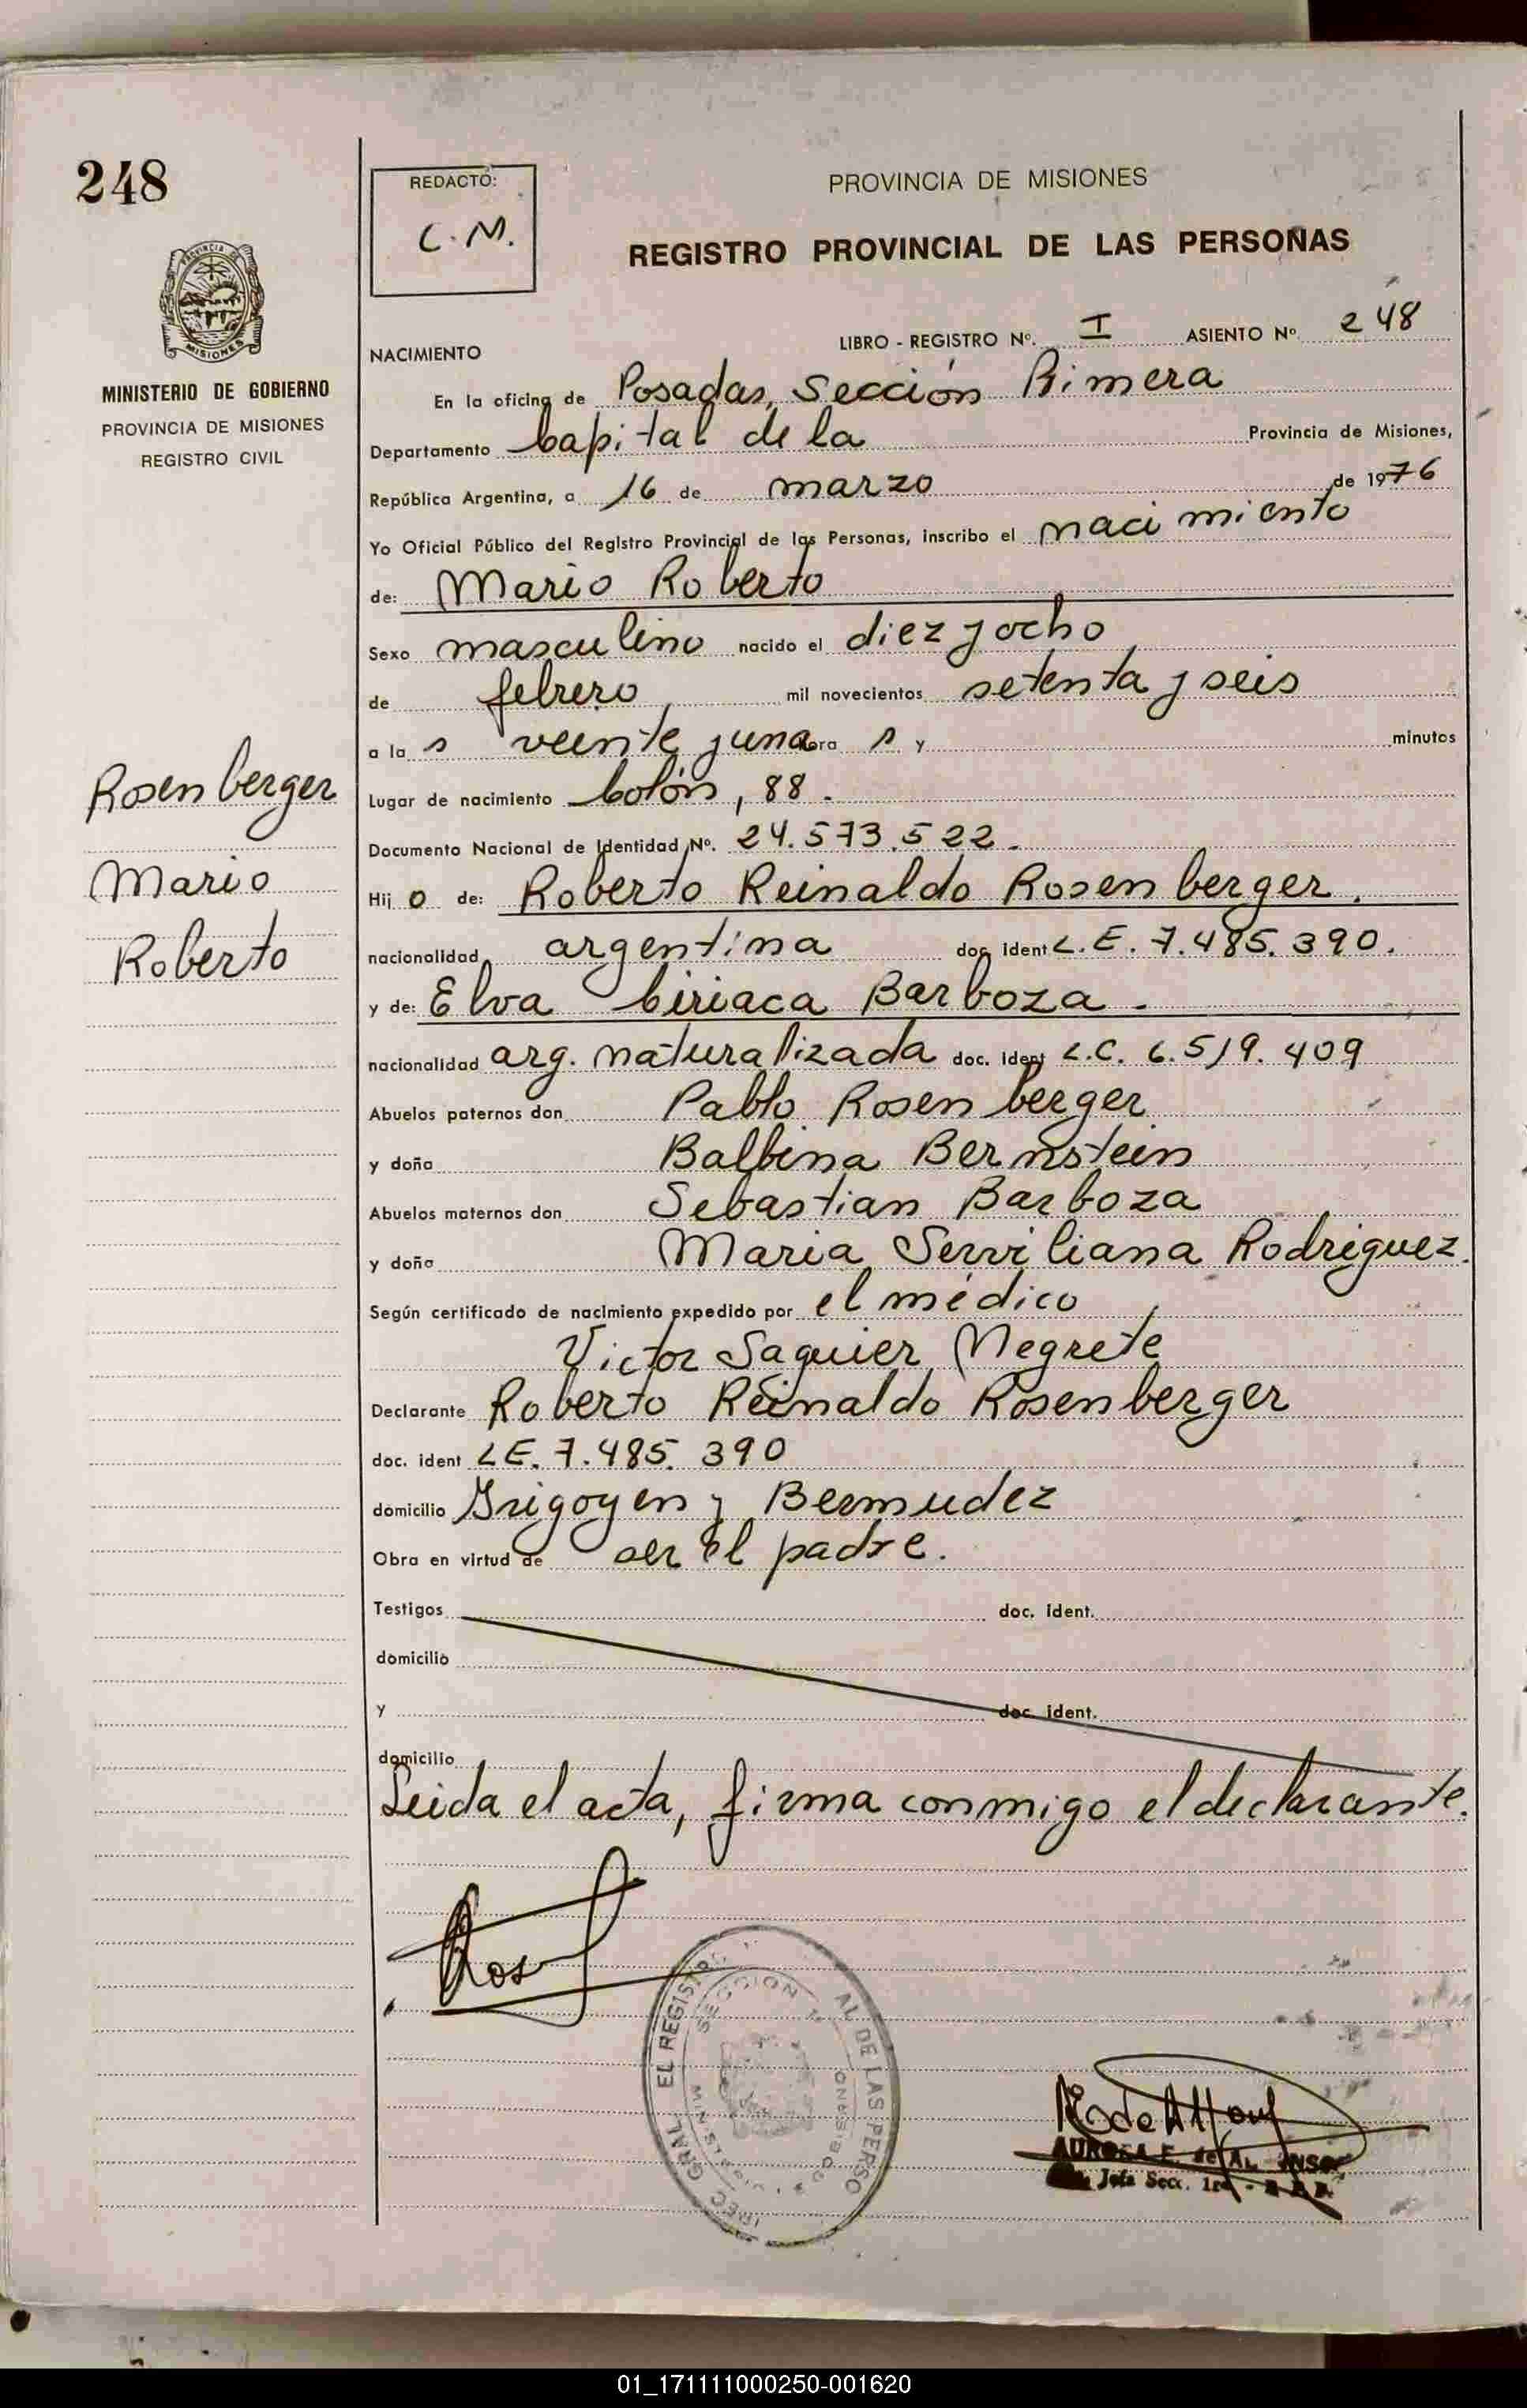 248
REDACTÓ:
C.M.
PROVINCIA DE MISIONES
REGISTRO PROVINCIAL DE LAS PERSONAS
PROVINCIA DE
MISIONES
MINISTERIO DE GOBIERNO
PROVINCIA DE MISIONES
REGISTRO CIVIL
NACIMIENTO
LIBRO - REGISTRO Nº. I ASIENTO Nº. 248
En la oficina de Posadas, Sección Primera
Departamento Capital de la Provincia de Misiones,
República Argentina, a 16 de marzo de 1976
Yo Oficial Público del Registro Provincial de las Personas, inscribo el nacimiento
de: Mario Roberto
Sexo masculino nacido el diez y ocho
de febrero, mil novecientos setenta y seis
a la s veinte y una hora s y minutos
Lugar de nacimiento Colón, 88.
Documento Nacional de Identidad Nº. 24.573.522.
Hij o de: Roberto Reinaldo Rosenberger.
nacionalidad argentina doc ident L.E. 7.485.390.
y de: Elva Ciriaca Barboza.
nacionalidad arg. naturalizada doc. ident L.C. 6.519.409
Abuelos paternos don Pablo Rosenberger
y doña Balbina Bernstein
Abuelos maternos don Sebastian Barboza
y doña Maria Serviliana Rodriguez.
Según certificado de nacimiento expedido por el médico
Victor Saguier Negrete
Declarante Roberto Reinaldo Rosenberger
doc. ident LE. 7.485.390
domicilio Irigoyen y Bermudez
Obra en virtud de ser el padre.
Testigos doc. ident.
domicilio
y doc. ident.
domicilio
Leida el acta, firma conmigo el declarante.
Rosenberger
Mario
Roberto
Ros
EL REGISTRO AL DE LAS PERSO
SECCION
POSADAS
Jefa Secc. 1ra
01_171111000250-001620